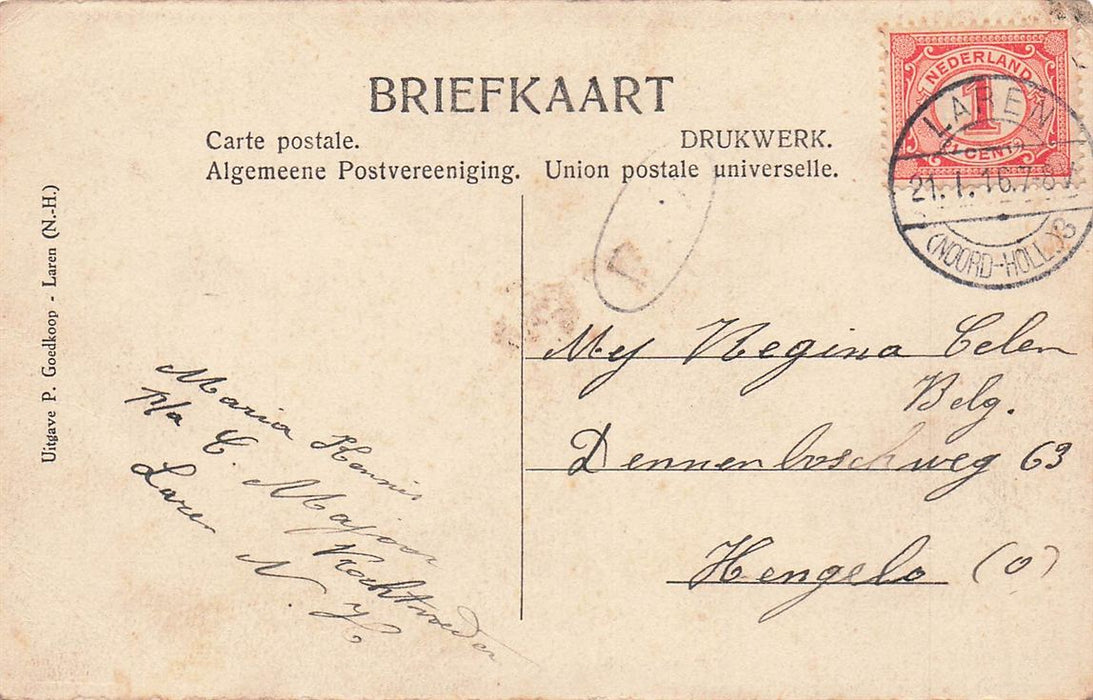 BRIEFKAART
Carte postale. DRUKWERK.
Algemeene Postvereeniging. Union postale universelle.
NEDERLAND
1
1 CENT
LAREN
21.1.16.7-8V
(NOORD-HOLL.)3
Uitgave P. Goedkoop - Laren (N.-H.)
Maria Hennis
p/a C. Majoor
Vrachtrijder
Laren N H
Mej Regina Celen
Belg.
Dennenboschweg 63
Hengelo (O)